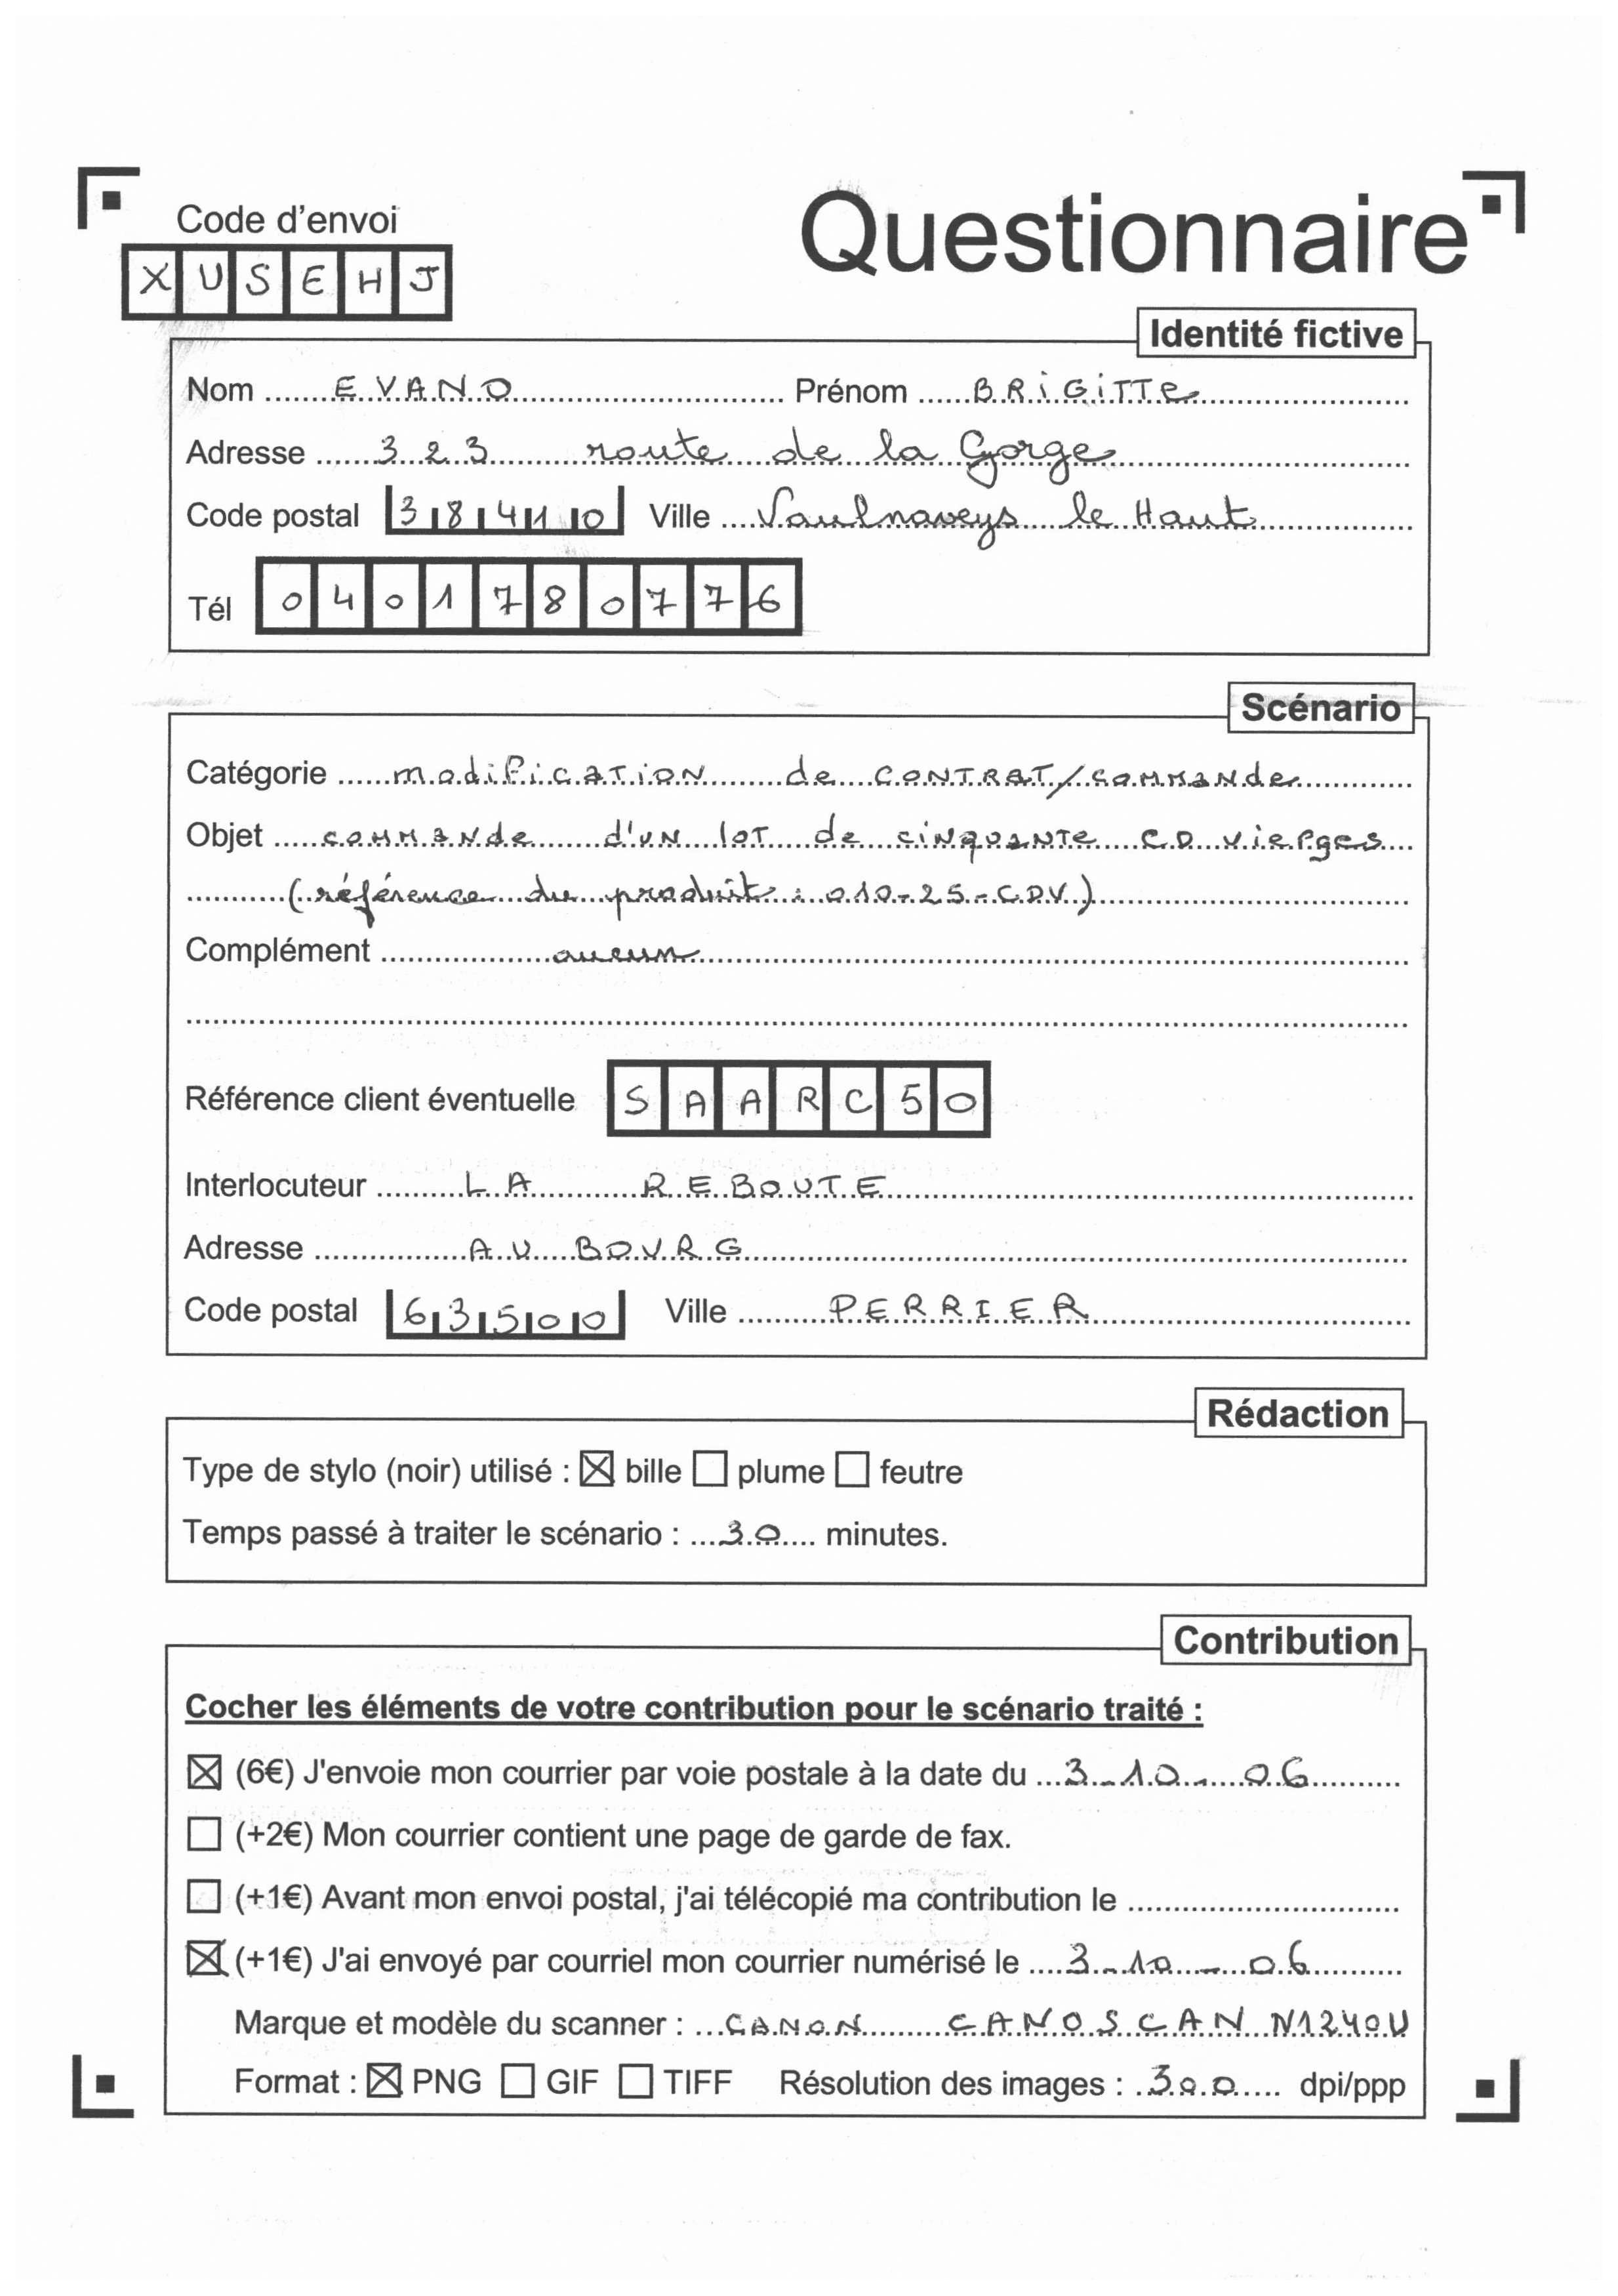 Questionnaire
Code d'envoi
XUSEHJ
Identité fictive
Nom EVANO Prénom BRiGiTTe
Adresse 323 route de la Gorge
Code postal 38410 Ville Vaulnaveys le Haut
Tél 0401780776
Scénario
Catégorie modification de CONTRAT/commande
Objet commande d'un lot de cinquante CD vierges
(référence du produit : 010-25-CDV)
Complément aucun
Référence client éventuelle SAARC50
Interlocuteur LA REBOUTE
Adresse AU BOURG
Code postal 63500 Ville PERRIER
Rédaction
Type de stylo (noir) utilisé : ☒ bille ☐ plume ☐ feutre
Temps passé à traiter le scénario : 30 minutes.
Contribution
Cocher les éléments de votre contribution pour le scénario traité :
☒ (6€) J'envoie mon courrier par voie postale à la date du 3-10-06
☐ (+2€) Mon courrier contient une page de garde de fax.
☐ (+1€) Avant mon envoi postal, j'ai télécopié ma contribution le
☒ (+1€) J'ai envoyé par courriel mon courrier numérisé le 3-10-06
Marque et modèle du scanner : CANON CANOSCAN N1240U
Format : ☒ PNG ☐ GIF ☐ TIFF Résolution des images : 300 dpi/ppp